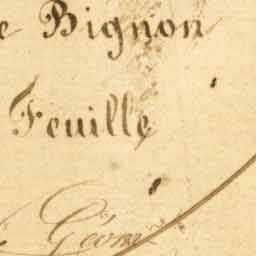 e Bignon
Feuille
Géom